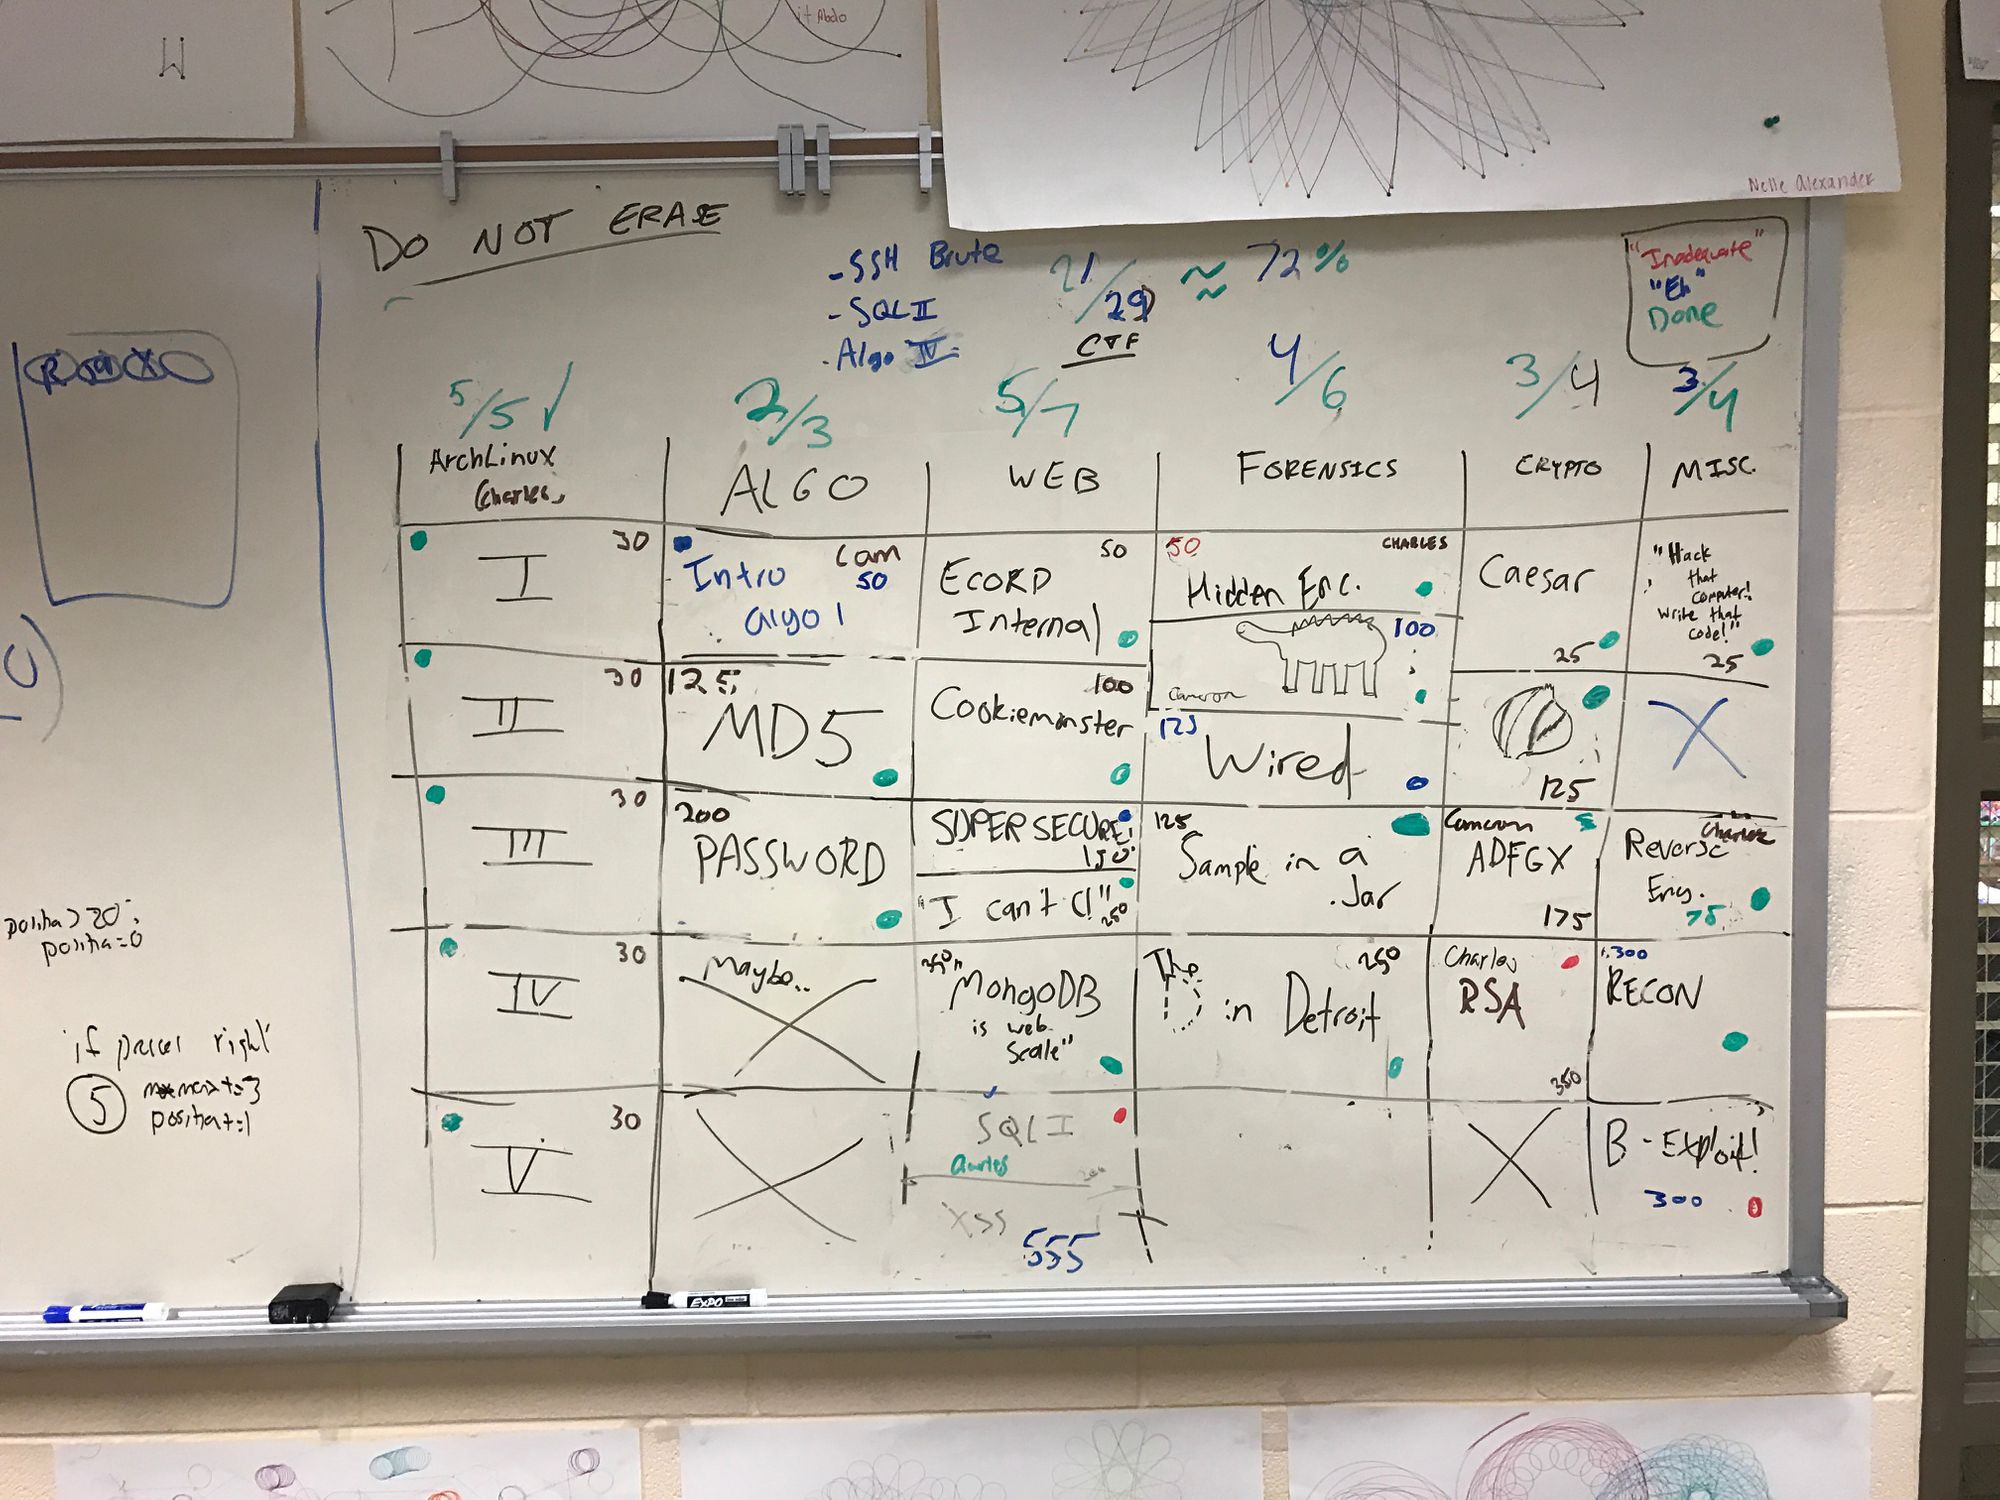 it Abdo
W
Nelle Alexander
DO NOT ERASE
- SSH Brute
- SQLI
- Algo IV
21/29 ≈ 72%
CTF
"Inadequate"
"Eh"
Done
5/5 ✓
2/3
5/7
4/6
3/4
3/4
ArchLinux
Charles
ALGO
WEB
FORENSICS
CRYPTO
MISC.
I
30
Intro
algo 1
Cam
50
ECORD
Internal
50
50
CHARLES
Hidden Enc.
Caesar
25
"Hack
that
computer!
Write that
code!"
25
100
Cameron
II
30
125
MD5
Cookiemonster
100
125
Wired
125
X
III
30
200
PASSWORD
SUPER SECURE!
150
"I can't C!"
250
125
Sample in a
Jar
Cameron
ADFGX
175
Charles
Reverse
Eng.
75
IV
30
Maybe..
"MongoDB
is web
scale"
The
D in Detroit
250
Charles
RSA
350
300
RECON
V
30
SQLI
XSS
555
B-Exploit!
300
if pacer right
5
position+=1
EXPO